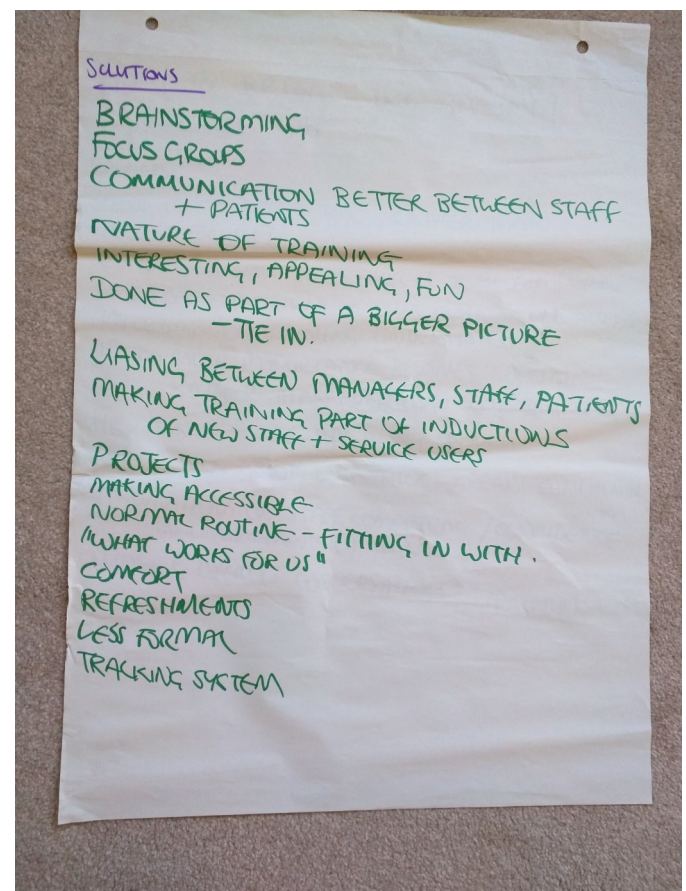 SOLUTIONS
BRAINSTORMING
FOCUS GROUPS
COMMUNICATION BETTER BETWEEN STAFF
+ PATIENTS
NATURE OF TRAINING
INTERESTING, APPEALING, FUN
DONE AS PART OF A BIGGER PICTURE
- TIE IN.
LIASING BETWEEN MANAGERS, STAFF, PATIENTS
MAKING TRAINING PART OF INDUCTIONS
OF NEW STAFF + SERVICE USERS
PROJECTS
MAKING ACCESSIBLE
NORMAL ROUTINE - FITTING IN WITH.
"WHAT WORKS FOR US"
COMFORT
REFRESHMENTS
LESS FORMAL
TRACKING SYSTEM